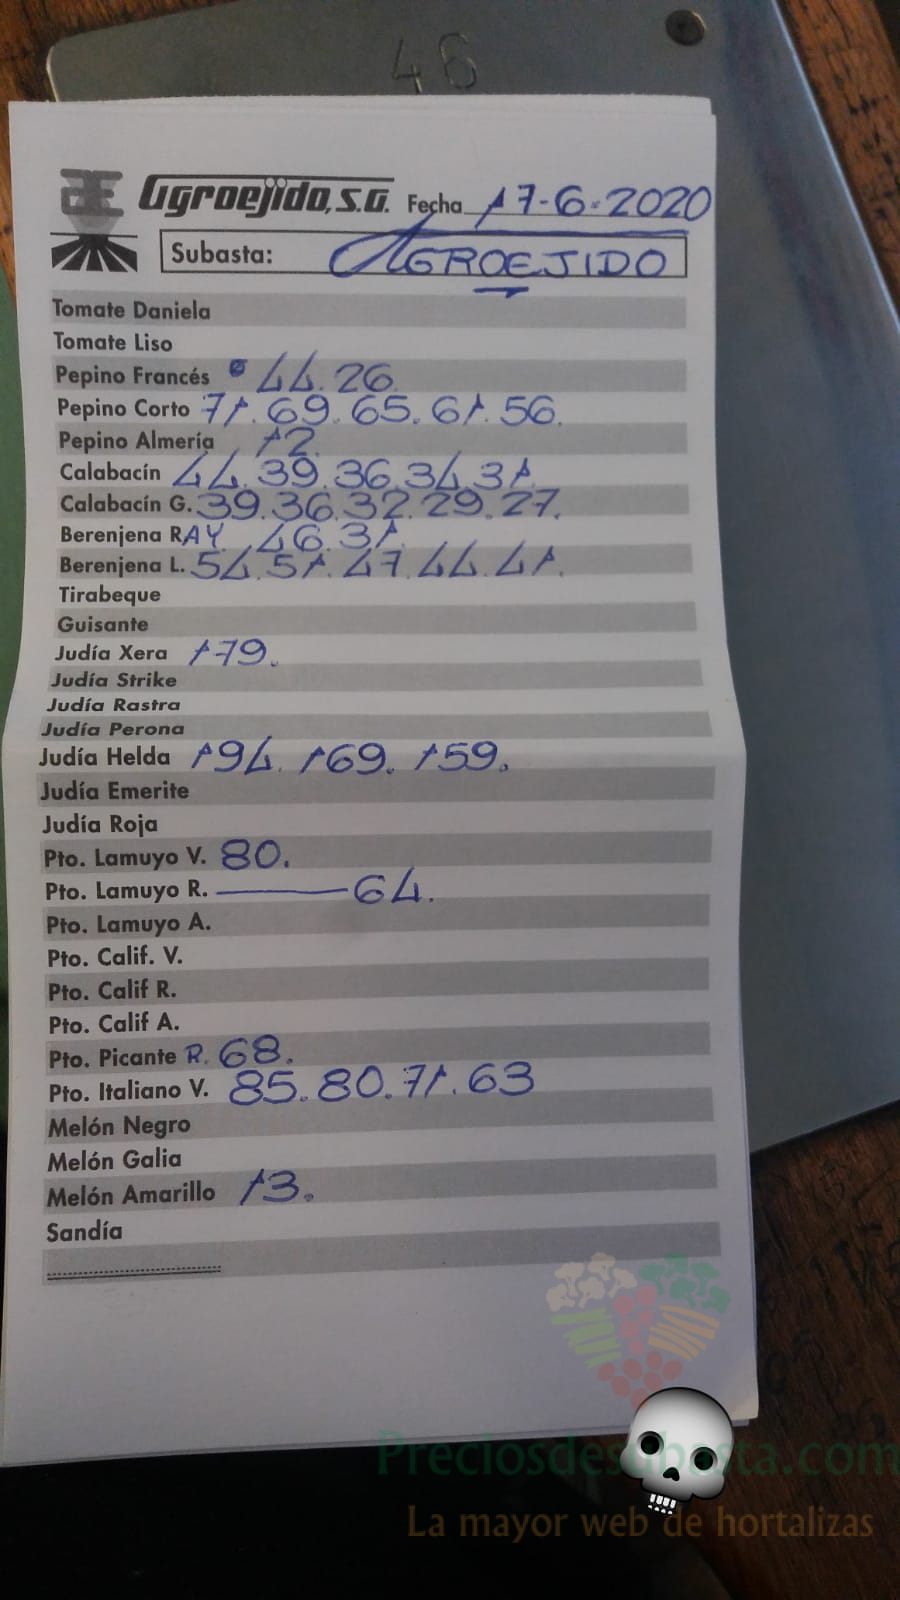 46
Agroejido, S.A. Fecha 17-6-2020
Subasta: AGROEJIDO
Tomate Daniela
Tomate Liso
Pepino Francés 44.26.
Pepino Corto 71.69.65.61.56.
Pepino Almería 12.
Calabacín 44.39.36.34.31.
Calabacín G. 39.36.32.29.27.
Berenjena RAY. 46.31.
Berenjena L. 54.51.47.44.41.
Tirabeque
Guisante
Judía Xera 179.
Judía Strike
Judía Rastra
Judía Perona
Judía Helda 194. 169. 159.
Judía Emerite
Judía Roja
Pto. Lamuyo V. 80.
Pto. Lamuyo R. 64.
Pto. Lamuyo A.
Pto. Calif. V.
Pto. Calif R.
Pto. Calif A.
Pto. Picante R. 68.
Pto. Italiano V. 85.80.71.63
Melón Negro
Melón Galia
Melón Amarillo 13.
Sandía
Preciosdesubasta.com
La mayor web de hortalizas